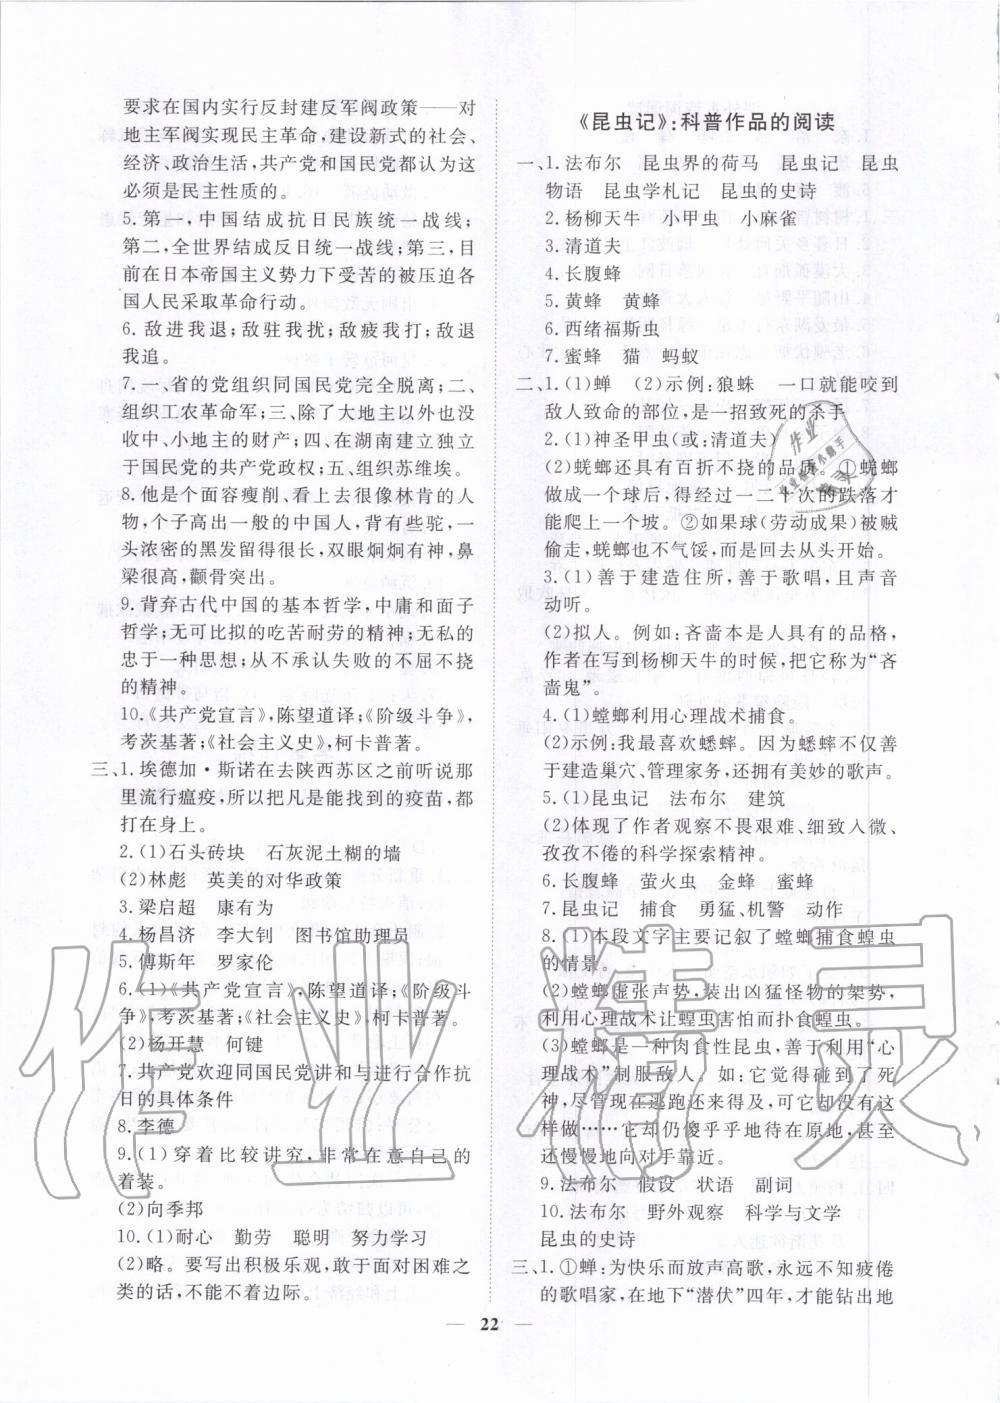 要求在国内实行反封建反军阀政策——对
地主军阀实现民主革命,建设新式的社会、
经济、政治生活,共产党和国民党都认为这
必须是民主性质的。
5.第一,中国结成抗日民族统一战线;
第二,全世界结成反日统一战线;第三,目
前在日本帝国主义势力下受苦的被压迫各
国人民采取革命行动。
6.敌进我退;敌驻我扰;敌疲我打;敌退
我追。
7.一、省的党组织同国民党完全脱离;二、
组织工农革命军;三、除了大地主以外也没
收中、小地主的财产;四、在湖南建立独立
于国民党的共产党政权;五、组织苏维埃。
8.他是个面容瘦削,看上去很像林肯的人
物,个子高出一般的中国人,背有些驼,一
头浓密的黑发留得很长,双眼炯炯有神,鼻
梁很高,颧骨突出。
9.背弃古代中国的基本哲学,中庸和面子
哲学;无可比拟的吃苦耐劳的精神;无私的
忠于一种思想;从不承认失败的不屈不挠
的精神。
10.《共产党宣言》,陈望道译;《阶级斗争》,
考茨基著;《社会主义史》,柯卡普著。
三、1.埃德加·斯诺在去陕西苏区之前听说那
里流行瘟疫,所以把凡是能找到的疫苗,都
打在身上。
2.(1)石头砖块 石灰泥土糊的墙
(2)林彪 英美的对华政策
3.梁启超 康有为
4.杨昌济 李大钊 图书馆助理员
5.傅斯年 罗家伦
6.(1)《共产党宣言》,陈望道译;《阶级斗
争》,考茨基著;《社会主义史》,柯卡普著。
(2)杨开慧 何键
7.共产党欢迎同国民党讲和与进行合作抗
日的具体条件
8.李德
9.(1)穿着比较讲究,非常在意自己的
着装。
(2)向季邦
10.(1)耐心 勤劳 聪明 努力学习
(2)略。要写出积极乐观,敢于面对困难之
类的话,不能不着边际。
《昆虫记》:科普作品的阅读
一、1.法布尔 昆虫界的荷马 昆虫记 昆虫
物语 昆虫学札记 昆虫的史诗
2.杨柳天牛 小甲虫 小麻雀
3.清道夫
4.长腹蜂
5.黄蜂 黄蜂
6.西绪福斯虫
7.蜜蜂 猫 蚂蚁
二、1.(1)蝉 (2)示例:狼蛛 一口就能咬到
敌人致命的部位,是一招致死的杀手
2.(1)神圣甲虫(或:清道夫)
(2)蜣螂还具有百折不挠的品质。①蜣螂
做成一个球后,得经过一二十次的跌落才
能爬上一个坡。②如果球(劳动成果)被贼
偷走,蜣螂也不气馁,而是从头开始。
3.(1)善于建造住所,善于歌唱,且声音
动听。
(2)拟人。例如:吝啬本是人具有的品格,
作者在写到杨柳天牛的时候,把它写成“吝
啬鬼”。
4.(1)螳螂利用心理战术捕食。
(2)示例:我最喜欢蟋蟀。因为蟋蟀不仅善
于建造巢穴、管理家务,还拥有美妙的歌声。
5.(1)昆虫记 法布尔 建筑
(2)体现了作者观察不畏艰难、细致入微、
孜孜不倦的科学探索精神。
6.长腹蜂 萤火虫 金蜂 蜜蜂
7.昆虫记 捕食 勇猛、机警 动作
8.(1)本段文字主要记叙了螳螂捕食蝗虫
的情景。
(2)螳螂虚张声势,装出凶猛怪物的架势,
利用心理战术让蝗虫害怕而扑食蝗虫。
(3)螳螂是一种肉食性昆虫,善于利用“心
理战术”制服敌人。如:它觉得碰到了死
神,尽管现在逃跑还来得及,可它却没有这
样做……它却仍傻乎乎地待在原地,甚至
还慢慢地向对手靠近。
9.法布尔 假设 状语 副词
10.法布尔 野外观察 科学与文学
昆虫的史诗
三、1.①蝉:为快乐而放声高歌,永远不知疲倦
的歌唱家,在地下“潜伏”四年,才能钻出地
22
作业精灵